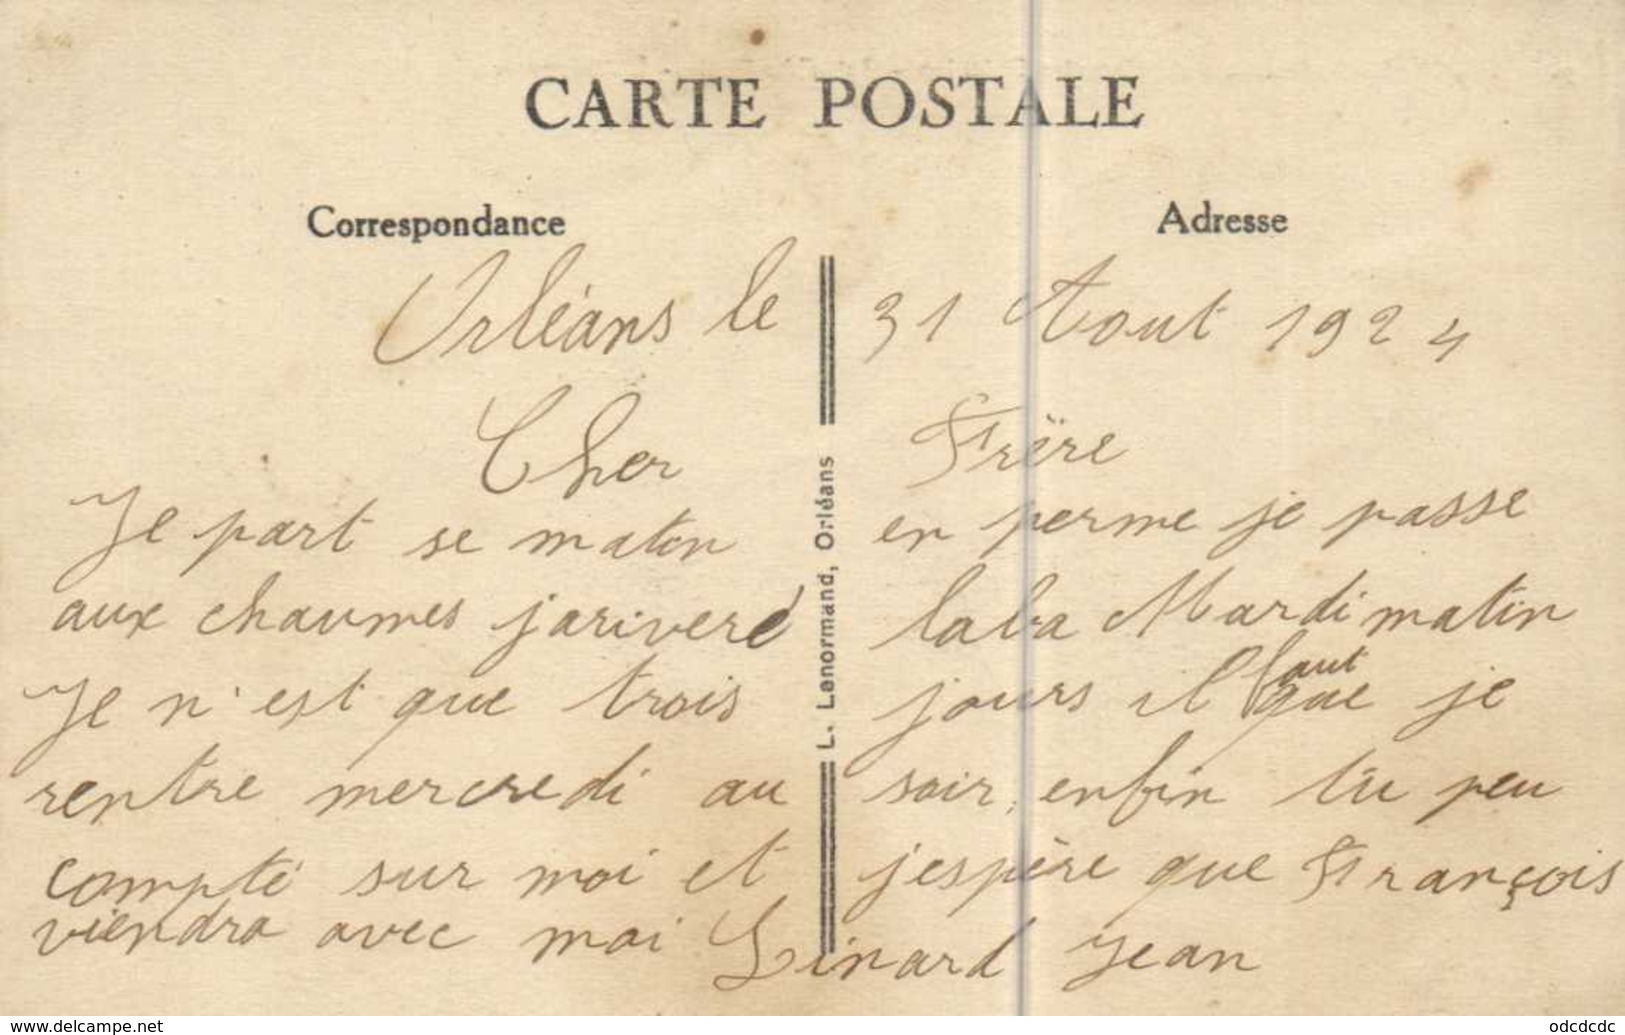 CARTE POSTALE
Correspondance Adresse
Orléans le 31 Aout 1924
Cher Frère
Je part se matin en perme je passe
aux chaumes jariveré laba Mardi matin
Je n'est que trois jours il faut que je
rentre mercredi au soir, enfin tu peu
compté sur moi et j'espère que François
viendra avec moi Linard Jean
L. Lenormand, Orléans
www.delcampe.net
odcdcdc